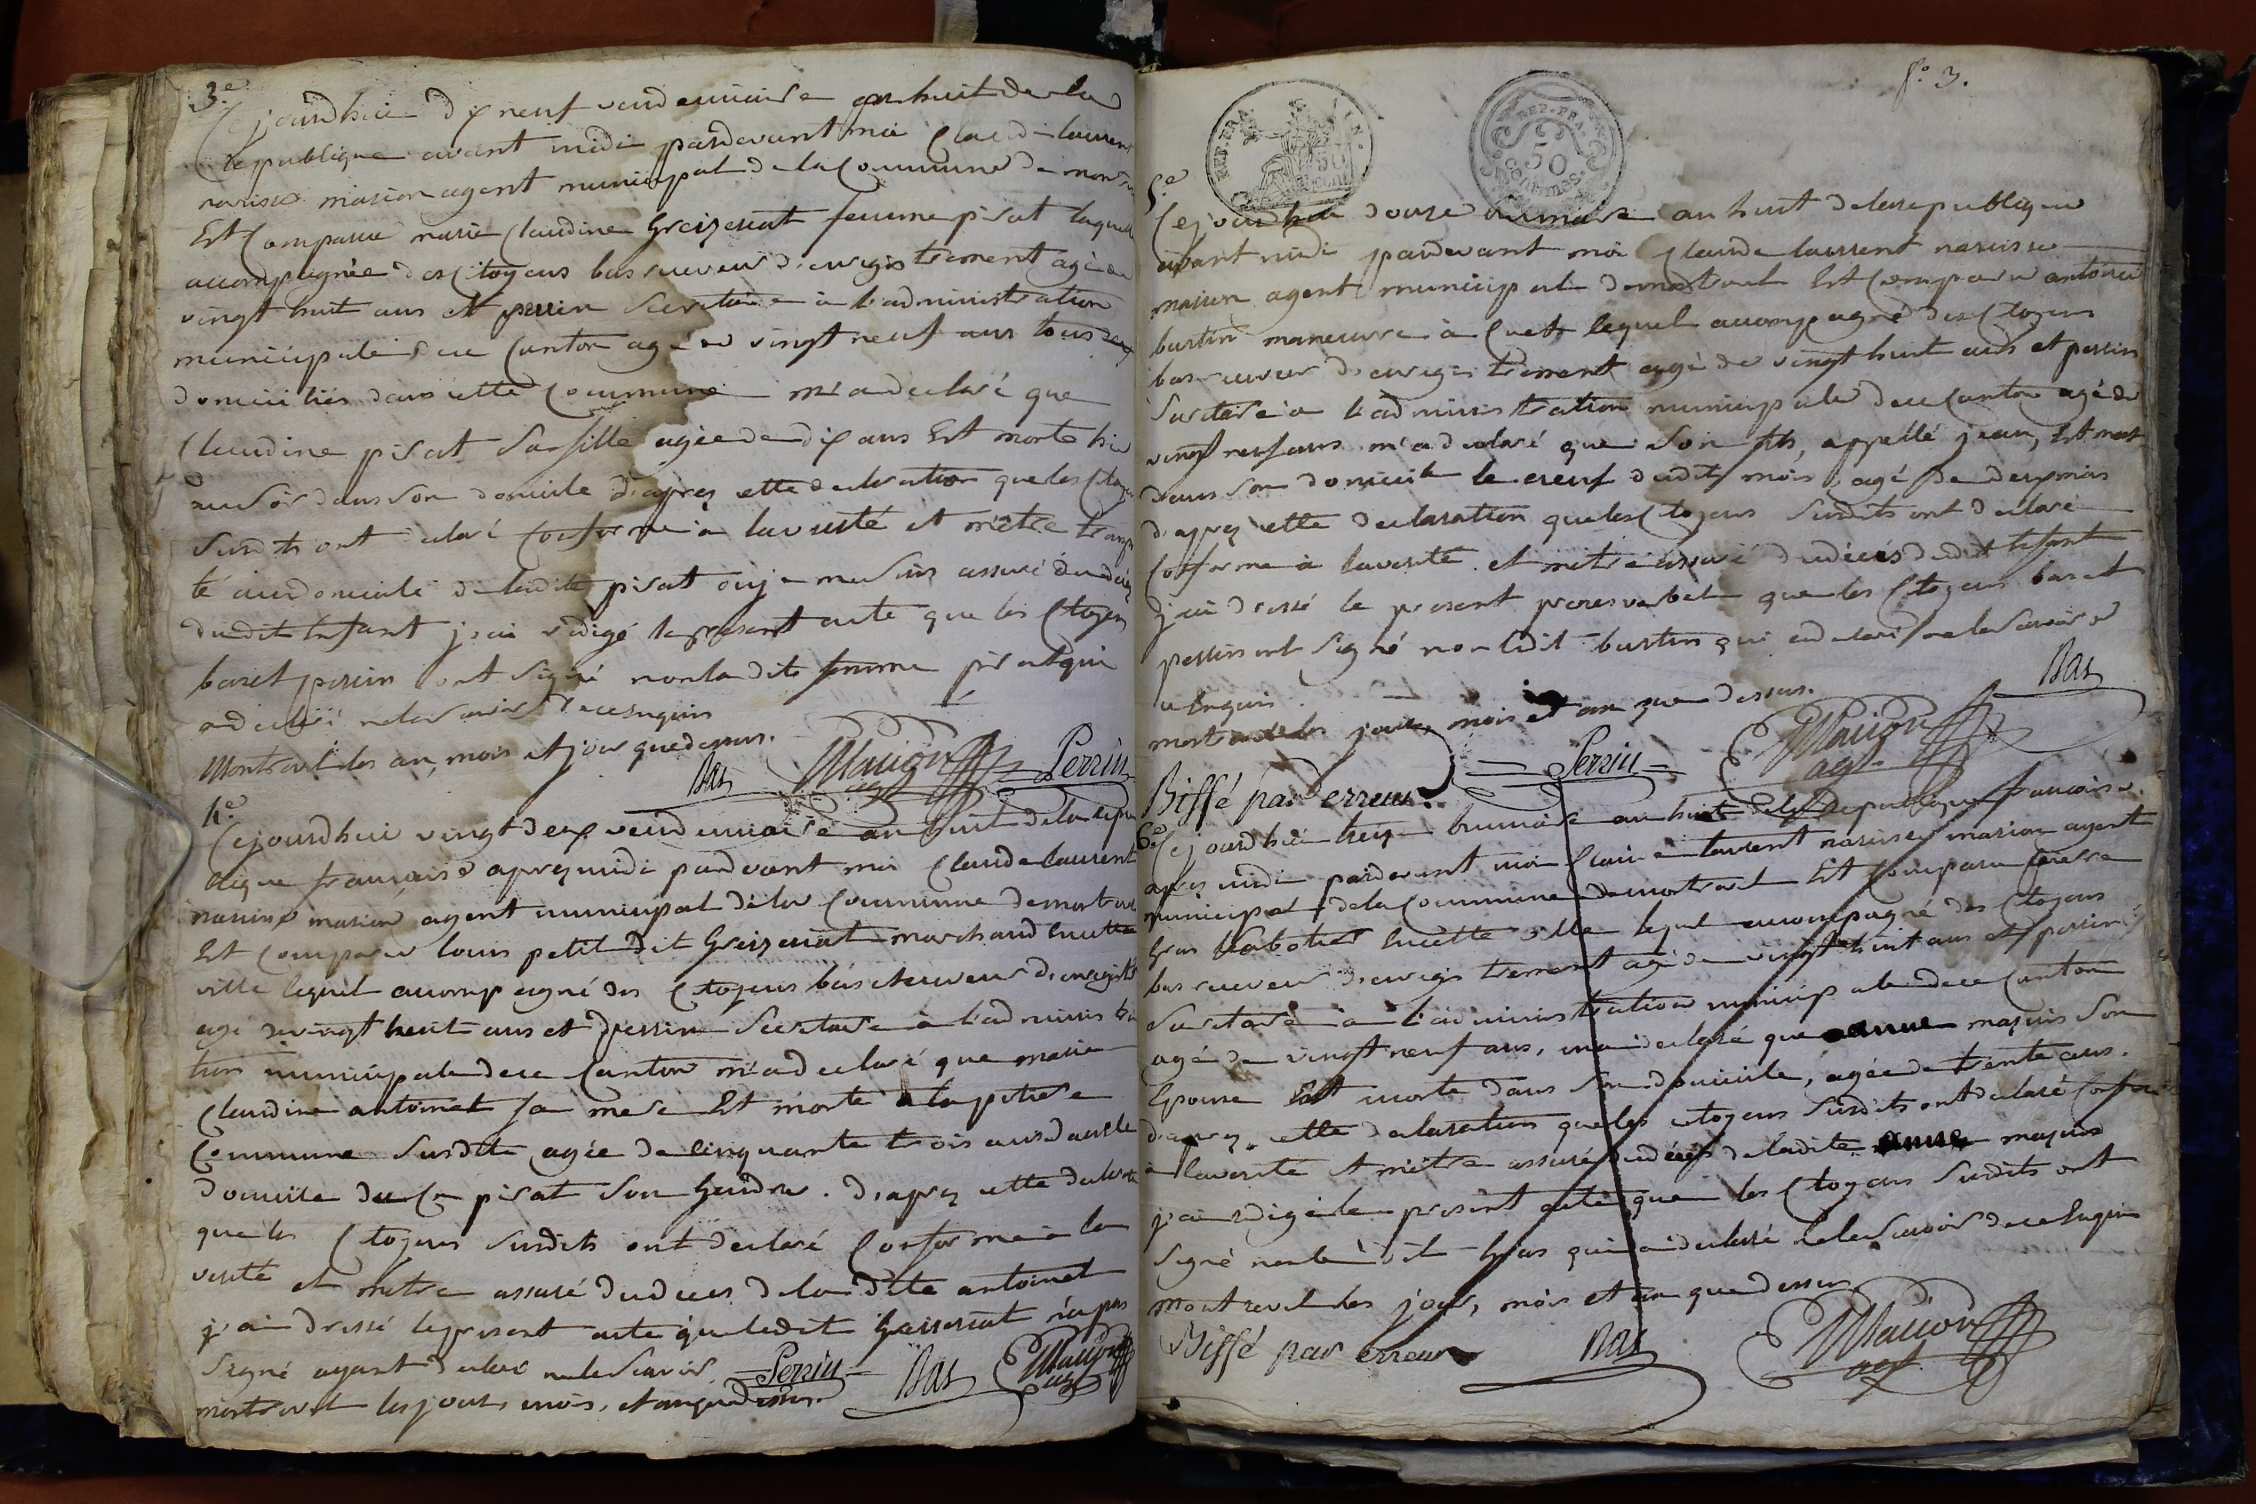 3.e
Cejourdhui dix neuf vendemiaire an huit de la
Republique avant midi pardevant moi Claude laurent
narisse marion agent municipal de la Commune de montre
Est Comparue marie Claudine Greizeriat femme pisat laquelle
accompagnée des Citoyens bas receveur d'enregistrement agé de
vingt huit ans et perrin Secretaire à l'administration
municipale de ce Canton agé de vingt neuf ans tous deux
domiciliés dans cette Commune m'a declaré que
Claudine pisat Sa fille agée de dix ans Est morte hier
au soir dans son domicile d'apres cette declaration que les Citoyens
Susdits ont declaré Conforme à la verité et m'être transpor
té au domicile de ladite pisat où je me suis assuré du décès
dudit Enfant j'ai rédigé le present acte que les Citoyens
bas et perrin ont Signé non ladite femme pisat qui
a declaré ne le savoir de ce Enquis
Montrevel les an, mois et jour que dessus.
Bas Marion agt Perrin
4.e
Cejourdhui vingt deux vendemiaire an huit de la repu
blique française apres midi pardevant moi Claude laurent
narisse marion agent municipal de la Commune de montrevel
Est Comparu louis petit dit Greizeriat marchand En cette
ville lequel accompagné des Citoyens bas receveur d'enregistr
agé de vingt huit ans et perrin Secretaire à l'administra
tion municipale de ce Canton m'a declaré que marie
Claudine antoinet sa mere Est morte a la
Commune Susdite agée de cinquante trois ans dans le
domicile du Cn pisat Son Gendre. d'apres cette declaration
que les Citoyens Susdits ont declaré Conforme à la
verité et m'etre assuré du deces de ladite antoinet
j'ai dressé le present acte que ledit Greizeriat n'a pas
Signé ayant declaré ne le Savoir.
Perrin Bas Marion agt
montrevel les jour, mois, et an que dessus.
f.o 3.
REP. FRA. 50 CENT.
REP. FRA. 50 Centimes.
5.e
Cejourdhui douze brumaire an huit de la republique
avant midi pardevant moi Claude laurent narisse
marion agent municipal de montrevel Est Comparu antoine
burtin manœuvre à Cuet lequel accompagné des Citoyens
bas receveur d'enregistrement agé de vingt huit ans et perrin
Secretaire à l'administration municipale de ce Canton agé de
vingt neuf ans m'a declaré que Son fils, appellé jean, Est mort
dans Son domicile le neuf dudit mois, agé de deux mois
d'apres cette declaration que les Citoyens Susdits ont declaré
Conforme à la verité et m'etre assuré du décès dudit Enfant
j'ai dressé le present proces verbal que les Citoyens bas et
perrin ont Signé non ledit burtin qui a declaré ne le Savoir de
ce Enquis.
montrevel les jours, mois et an que dessus.
Bas
Perrin Marion agt
Biffé par erreur.
6.e Cejourdhui treize brumaire an huit de la Republique française
apres midi pardevant moi Claude laurent narisse marion agent
municipal de la Commune de montrevel Est Comparu
Gras Sabotier En cette ville lequel accompagné des Citoyens
bas receveur d'enregistrement agé de vingt huit ans et perrin
Secretaire à l'administration municipale de ce Canton
agé de vingt neuf ans, m'a declaré que anne Son
Epouse Est morte dans Son domicile, agée de trente ans.
d'apres cette declaration que les citoyens Susdits ont declaré Conforme
à la verité et m'être assuré du décès de ladite anne
j'ai redigé le present acte que les Citoyens Susdits ont
Signé non ledit Gras qui a declaré ne le Savoir de ce Enquis
Montrevel les jour, mois et an que dessus
Biffé par erreur Bas Marion agt